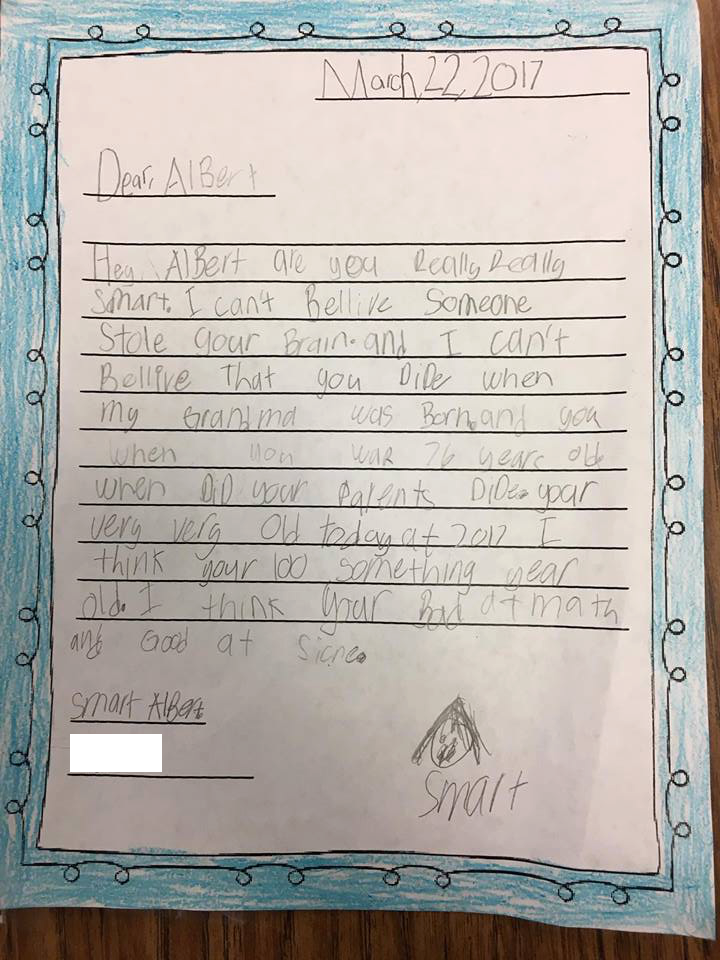 March, 22, 2017
Dear, AlBert
Hey, AlBert are you Really Really
smart. I can't Bellive Someone
Stole your Brain. and I can't
Bellive That you DiDe when
my Grandma was Born. and you
when you was 76 years old.
when DiD your Parents DiDe. your
very very Old today at 2017 I
think your 100 something year
old. I think your Bad at math
and Good at Sicne.
smart AlBert
smart